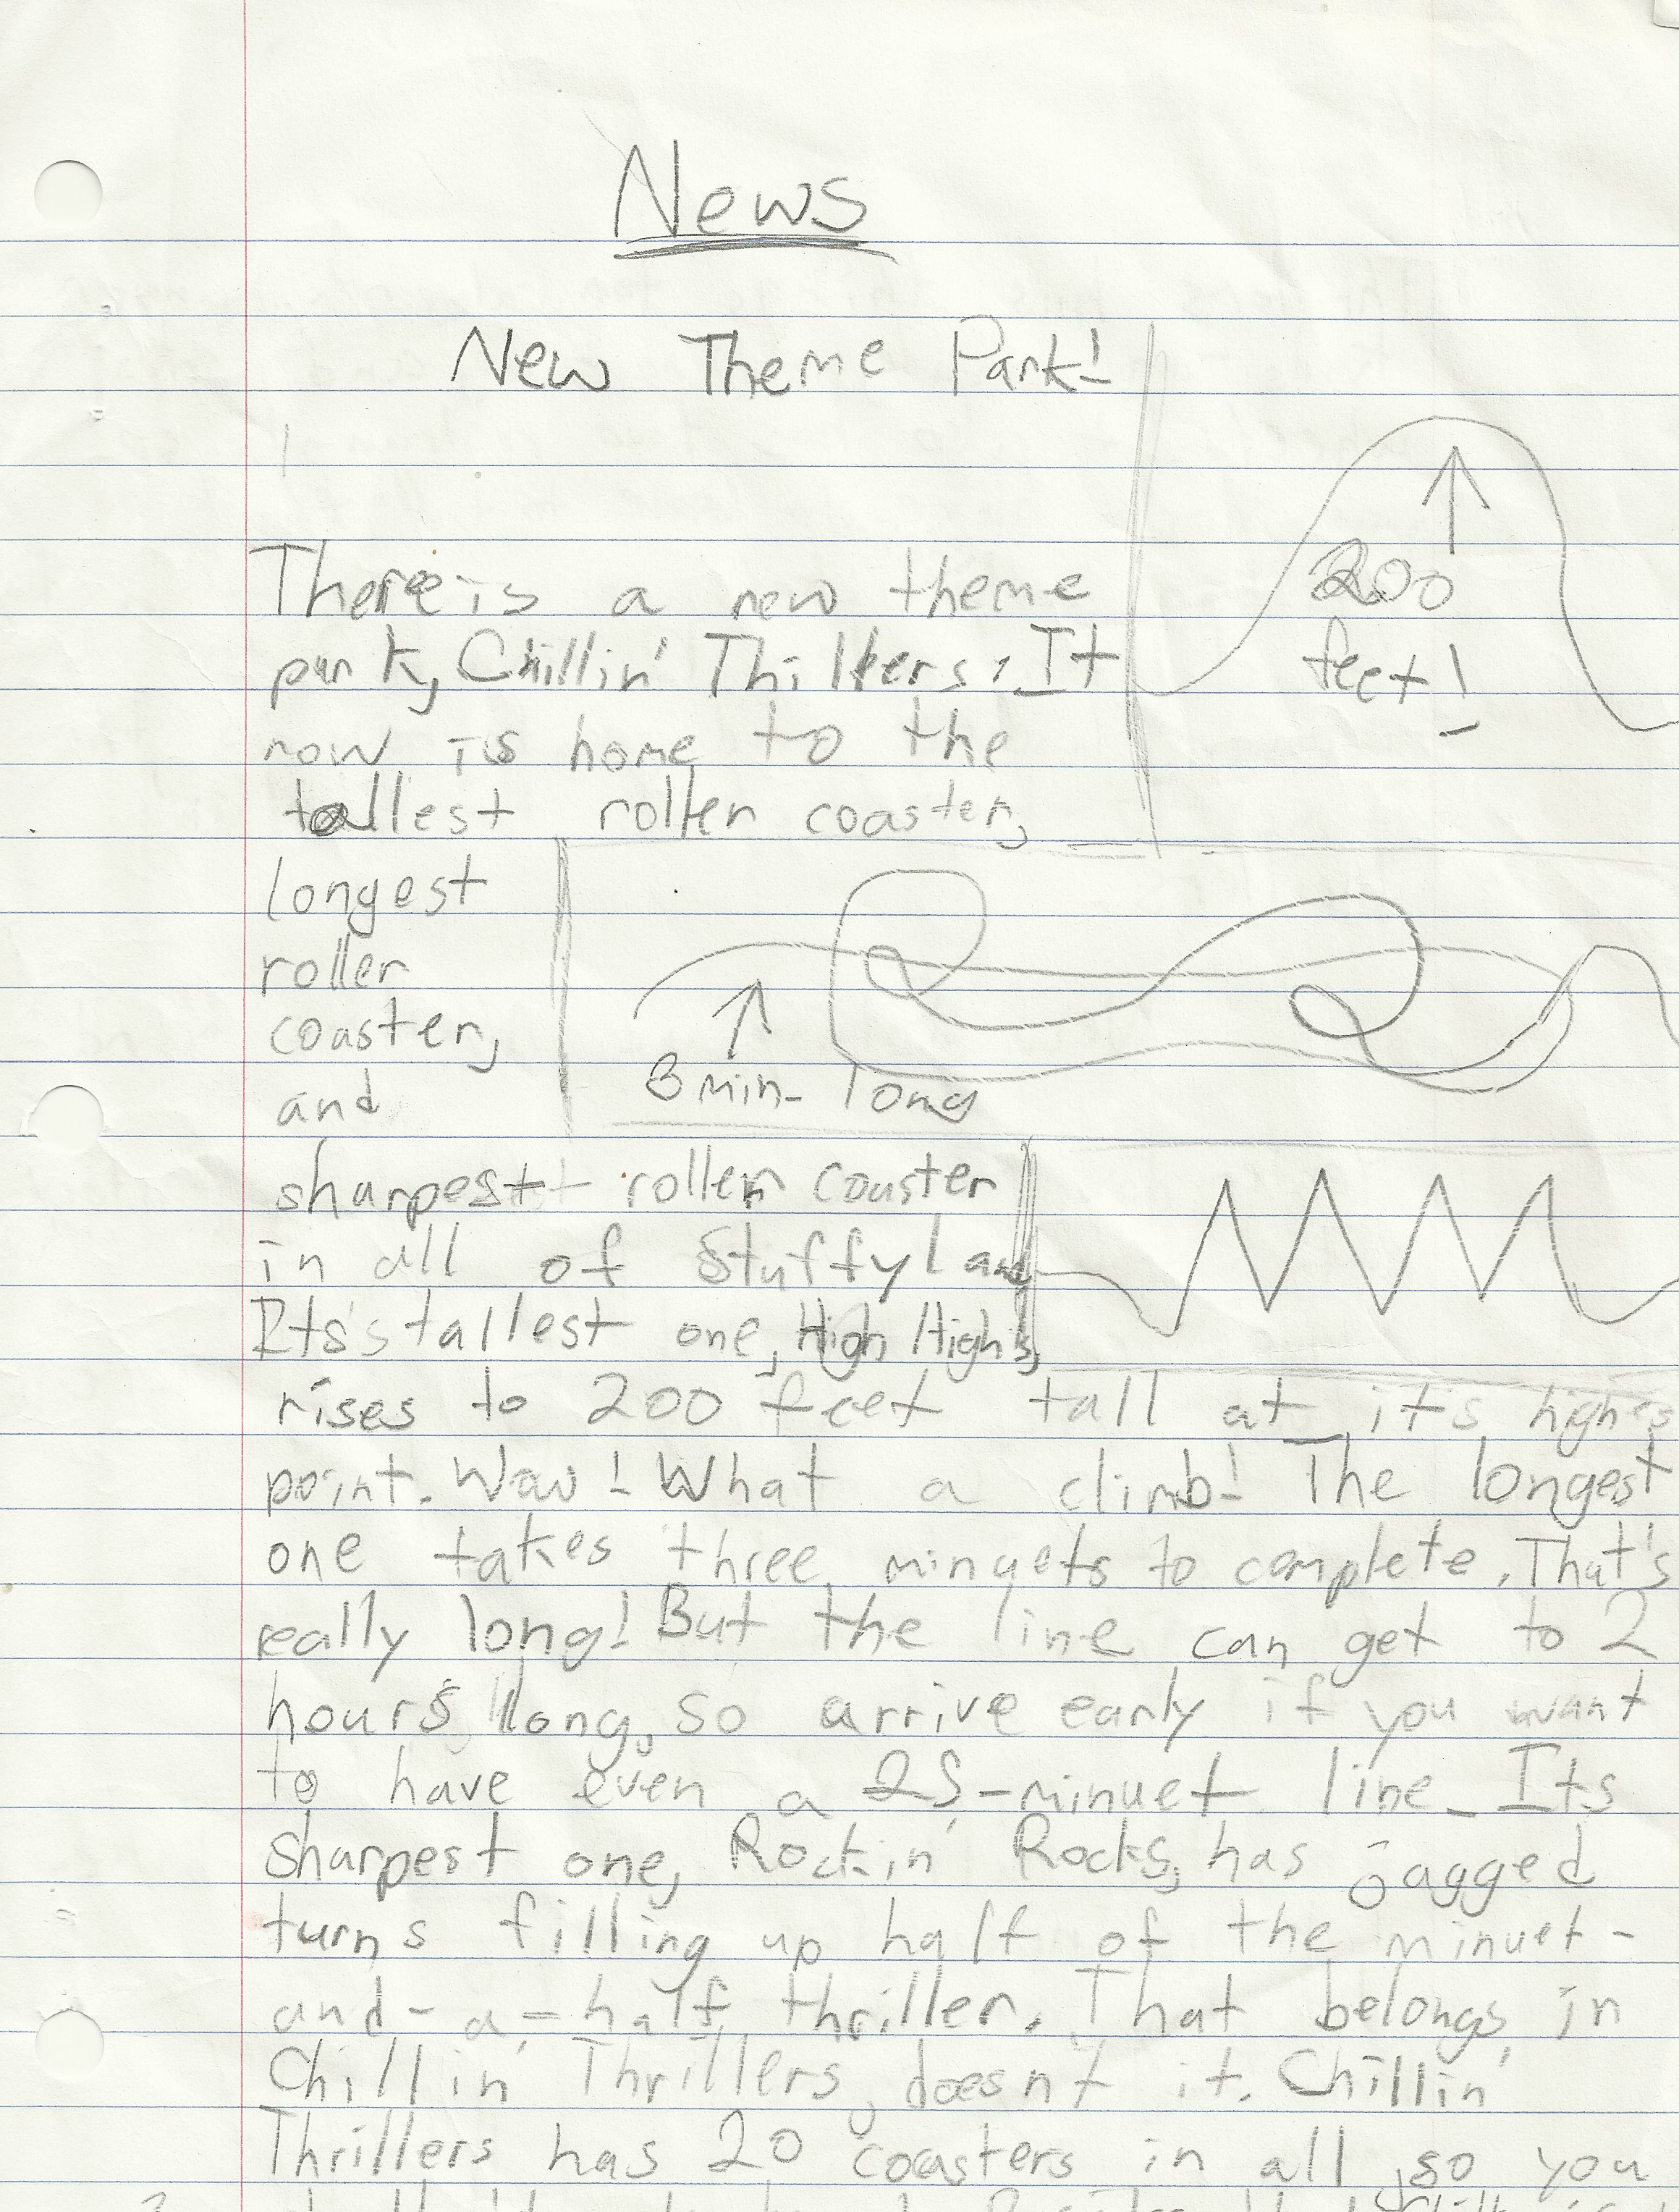 News
New Theme Park!
There is a new theme
park, Chillin' Thillers. It
now is home to the
tallest roller coaster,
200
feet!
longest
roller
coaster,
and
3 min. long
sharpest roller coaster
in all of Stuffyland
Its's tallest one, High Highs,
rises to 200 feet tall at its highes
point. Wow! What a climb! The longest
one takes three minuets to complete. That's
really long! But the line can get to 2
hours long, so arrive early if you want
to have even a 25-minuet line. Its
sharpest one, Rockin' Rocks, has jagged
turns filling up half of the minuet-
and-a-half thriller. That belongs in
Chillin' Thrillers, doesn't it. Chillin'
Thrillers has 20 coasters in all, so you